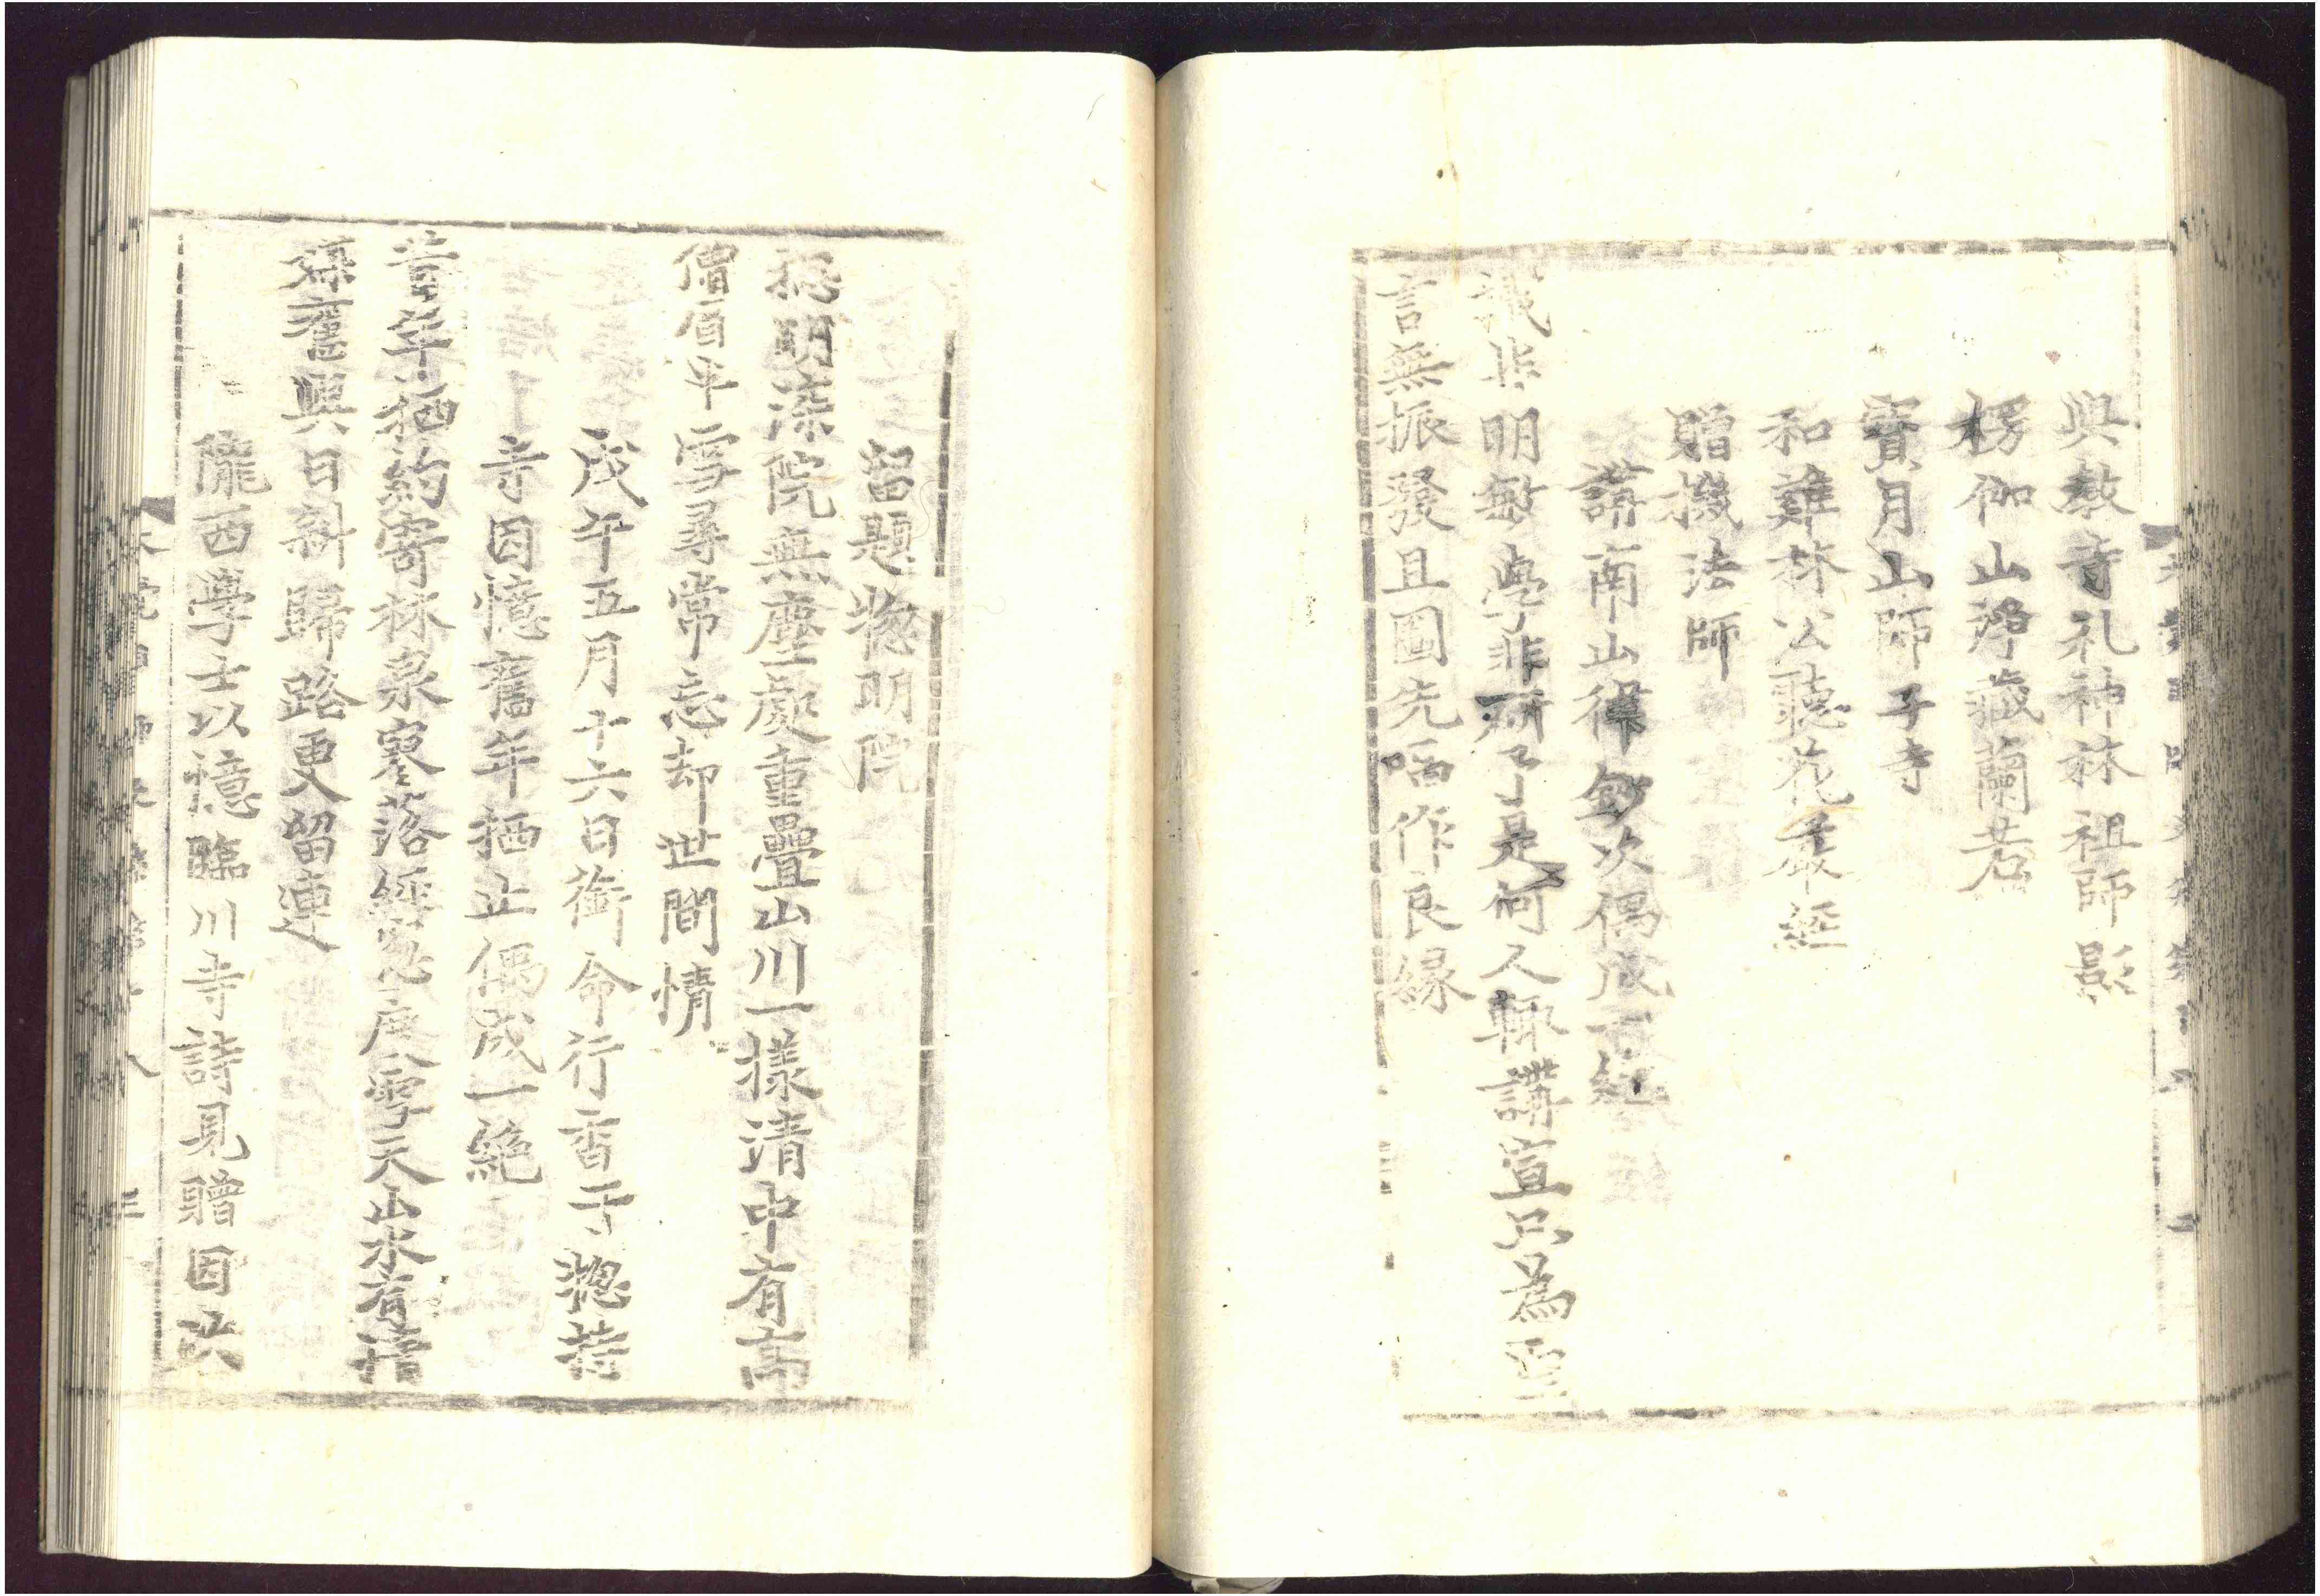 與教寺礼神林祖師影
楞伽山淨藏蘭若
寶月山師子寺
和雞林公聽花嚴經
贈機法師
講南山律鈔次偶成一絕
識非明敏學非研了是何人輒講宣只為聖
言無振發且圖先唱作良緣
留題惣明院
捴明深院無塵處重疊山川一樣清中有高
僧眉半雪尋常忘却世間情
戊午五月十六日銜命行香于惣持
寺因憶舊年栖止偶成一絕
昔年栖約寄林泉寥落經忽度雪天山水有情
舊與日斜歸路更留連
隴西學士以憶臨川寺詩見贈因次